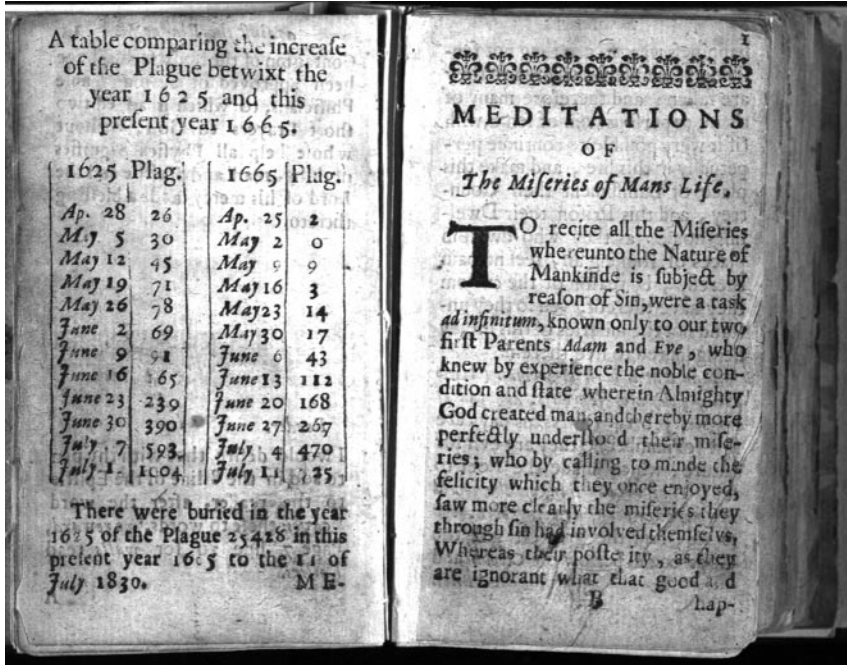 A table comparing the increaſe
of the Plague betwixt the
year 1625 and this
preſent year 1665.
1625 Plag. 1665 Plag.
Ap. 28 26 Ap. 25 2
May 5 30 May 2 0
May 12 45 May 9 9
May 19 71 May 16 3
May 26 78 May 23 14
June 2 69 May 30 17
June 9 91 June 6 43
June 16 165 June 13 112
June 23 239 June 20 168
June 30 390 June 27 267
July 7 593 July 4 470
July 1004 July 11
There were buried in the year
1625 of the Plague 25428 in this
preſent year 1665 to the 11 of
July 1830. ME-
1
MEDITATIONS
OF
The Miſeries of Mans Life,
TO recite all the Miſeries
whereunto the Nature of
Mankinde is ſubject by
reaſon of Sin, were a task
ad infinitum, known only to our two
firſt Parents Adam and Eve, who
knew by experience the noble con-
dition and ſtate wherein Almighty
God created man, and thereby more
perfectly underſtood their miſe-
ries; who by calling to minde the
felicity which they once enjoyed,
ſaw more clearly the miſeries they
through ſin had involved themſelvs,
Whereas their poſterity, as they
are ignorant what that good and
B hap-